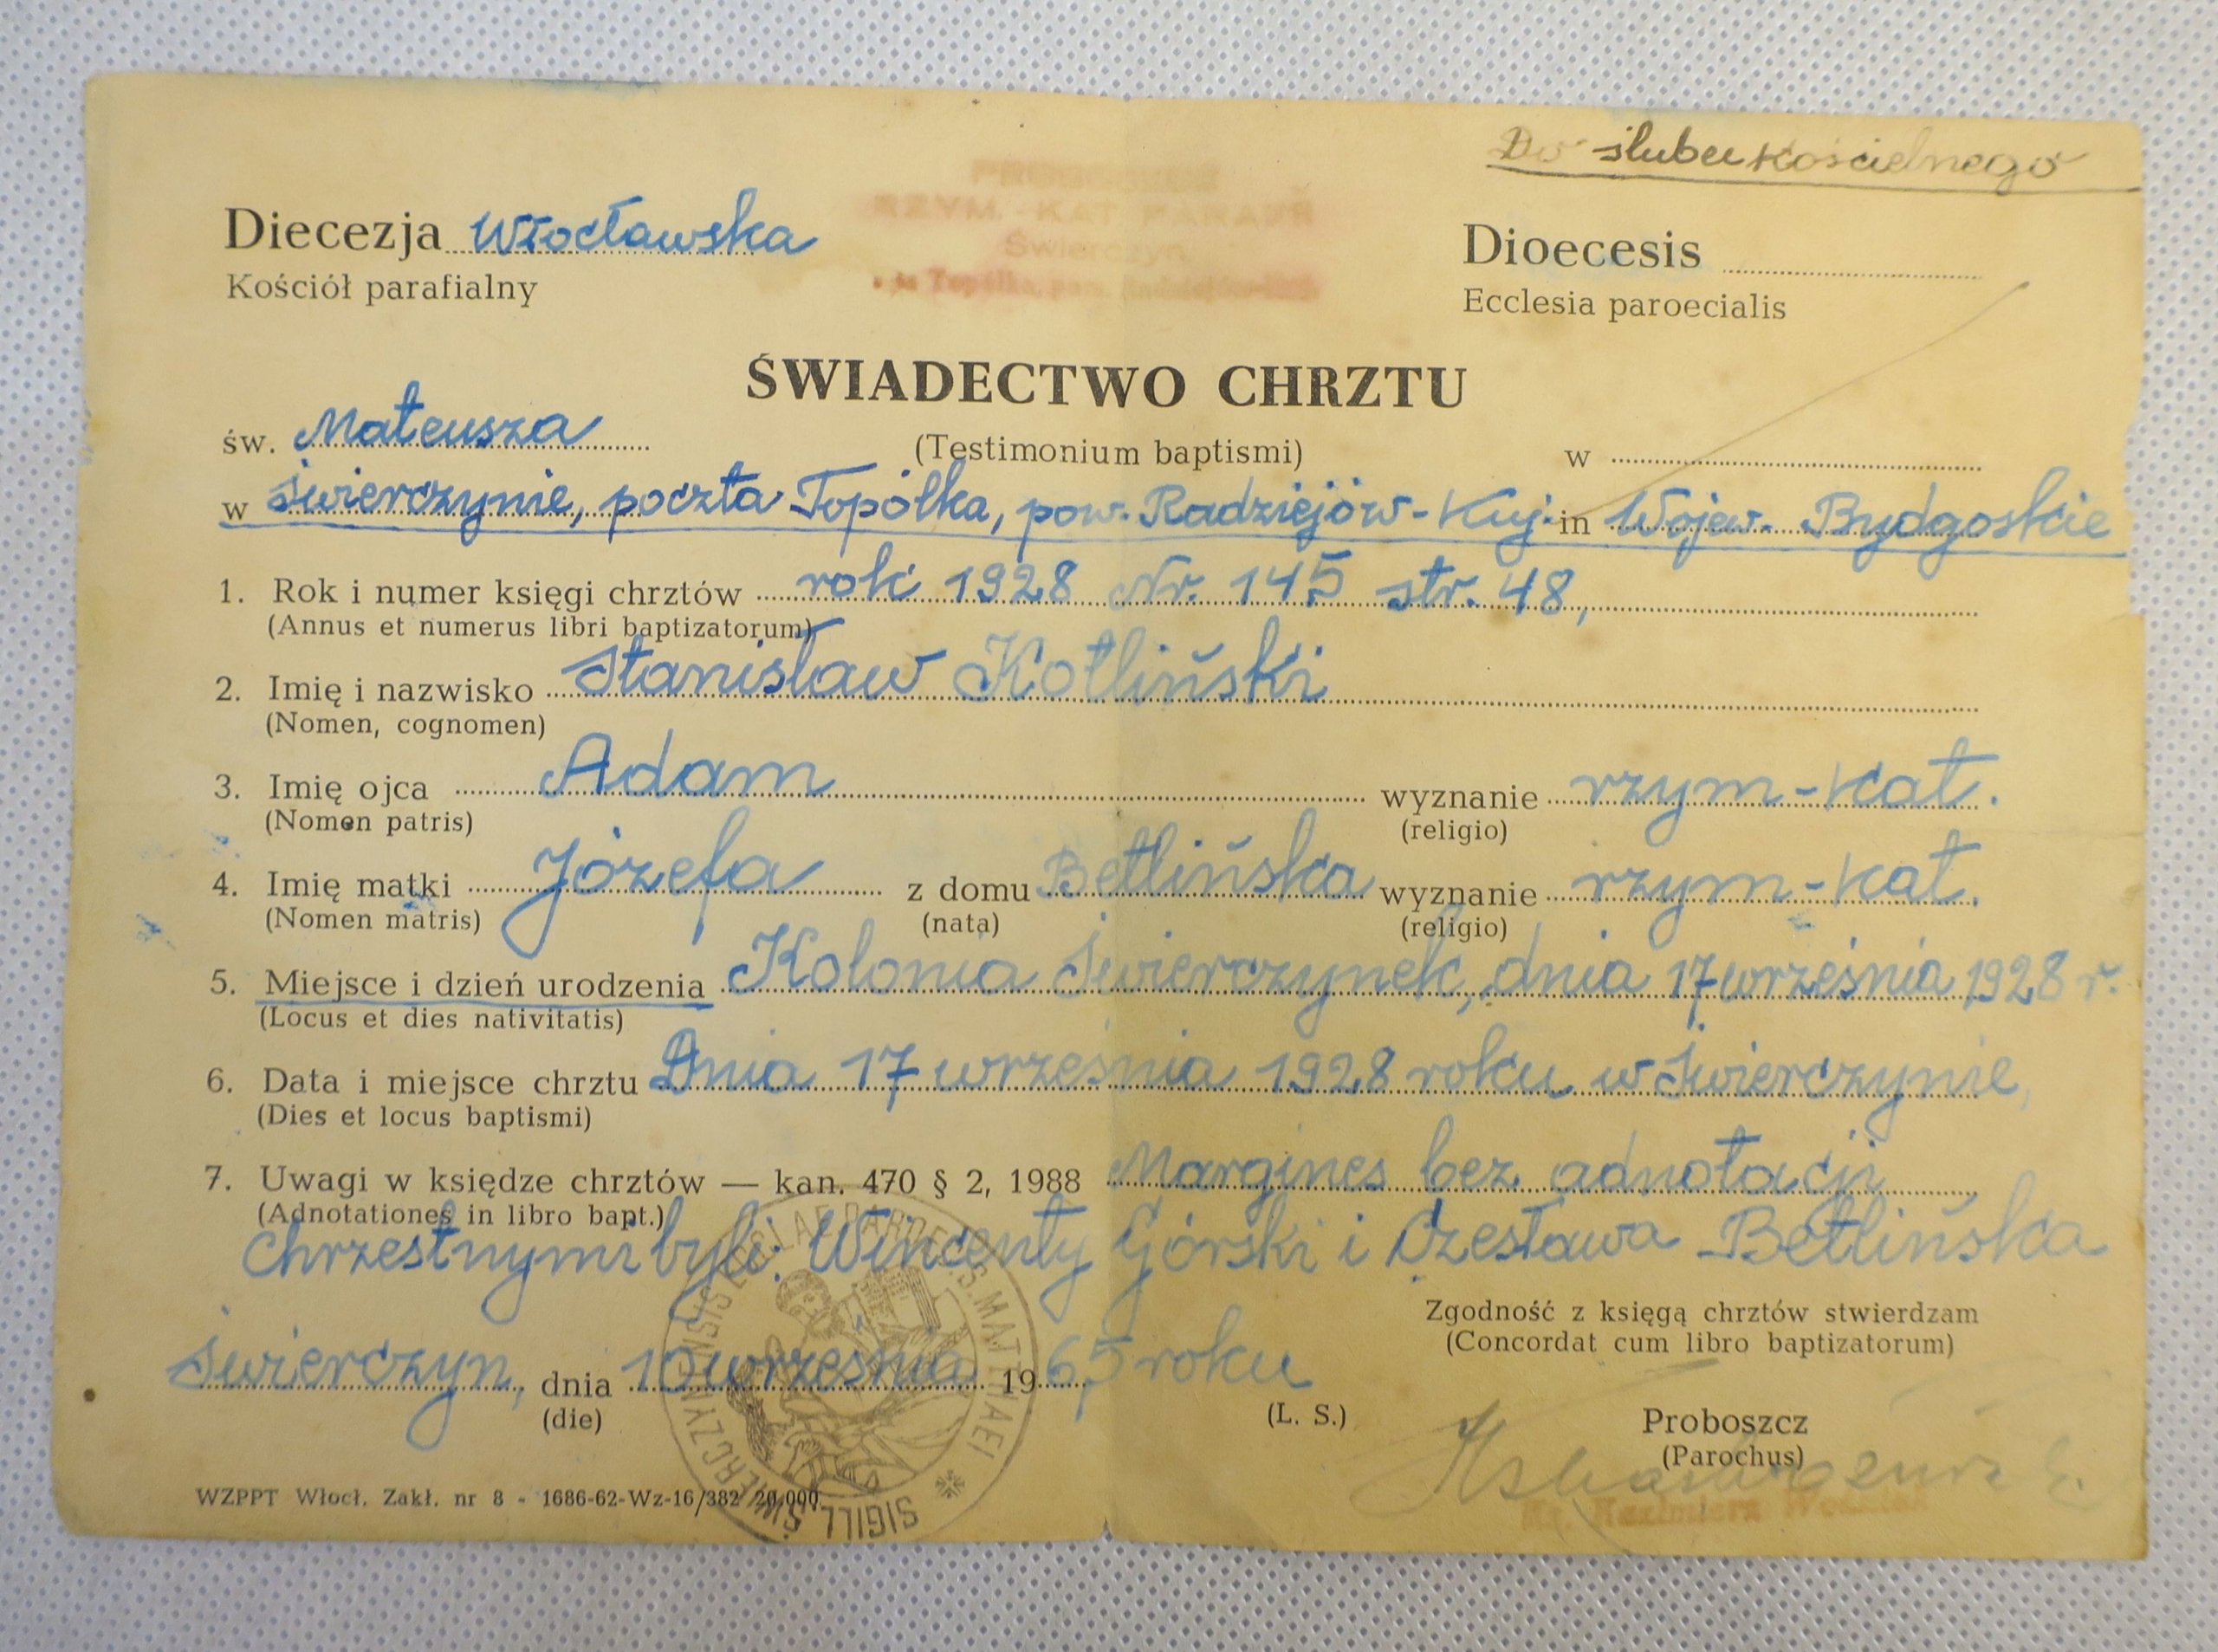 Do ślubu kościelnego
Diecezja Włocławska
Kościół parafialny
RZYM.-KAT. PARAFII
Świerczyn
Dioecesis
Ecclesia paroecialis
ŚWIADECTWO CHRZTU
(Testimonium baptismi)
św. Mateusza
w
w Świerczynie, poczta Topólka, pow. Radziejów-Kuj. in Wojew. Bydgoskie
1. Rok i numer księgi chrztów rok 1928 Nr. 145 str. 48,
(Annus et numerus libri baptizatorum)
2. Imię i nazwisko Stanisław Kotliński
(Nomen, cognomen)
3. Imię ojca Adam wyznanie rzym-kat.
(Nomen patris) (religio)
4. Imię matki Józefa z domu Betlińska wyznanie rzym-kat.
(Nomen matris) (nata) (religio)
5. Miejsce i dzień urodzenia Kolonia Świerczynek, dnia 17 września 1928 r.
(Locus et dies nativitatis)
6. Data i miejsce chrztu Dnia 17 września 1928 roku w Świerczynie,
(Dies et locus baptismi)
7. Uwagi w księdze chrztów — kan. 470 § 2, 1988 Margines bez adnotacji
(Adnotationes in libro bapt.)
Chrzestnymi byli: Wincenty Górski i Czesława Betlińska
Zgodność z księgą chrztów stwierdzam
(Concordat cum libro baptizatorum)
Świerczyn, dnia 10 września 1965 roku
(die)
(L. S.)
Proboszcz
(Parochus)
Ks. Kazimierz
SIGILL. ŚWIERCZYNENSIS ECCLESLAE PAROE. S. MATTHAEI
WZPPT Włocł. Zakł. nr 8 - 1686-62-Wz-16/382 20.000.